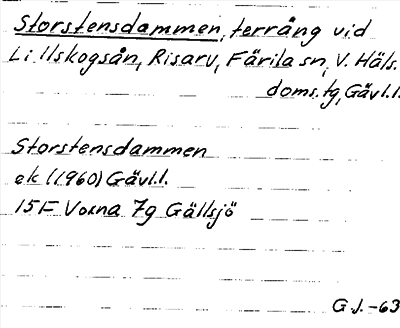 Storstensdammen, terräng vid
Lillskogsån, Risarv, Färila sn, V. Häls.
doms. tg, Gävl.l.
Storstensdammen
ek (1960) Gävl.l.
15F Voxna 7g Gällsjö
G.J. -63